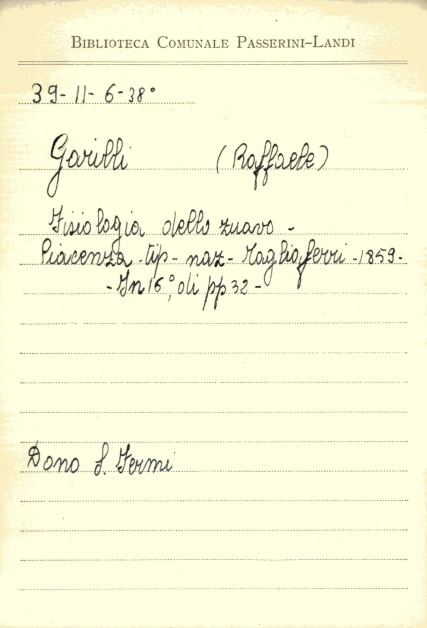 BIBLIOTECA COMUNALE PASSERINI-LANDI
39-11-6-38°
Garilli (Raffaele)
Fisiologia dello zuavo -
Piacenza - tip - naz - Tagliaferri - 1859 -
- In 16°, di pp 32 -
Dono S. Fermi